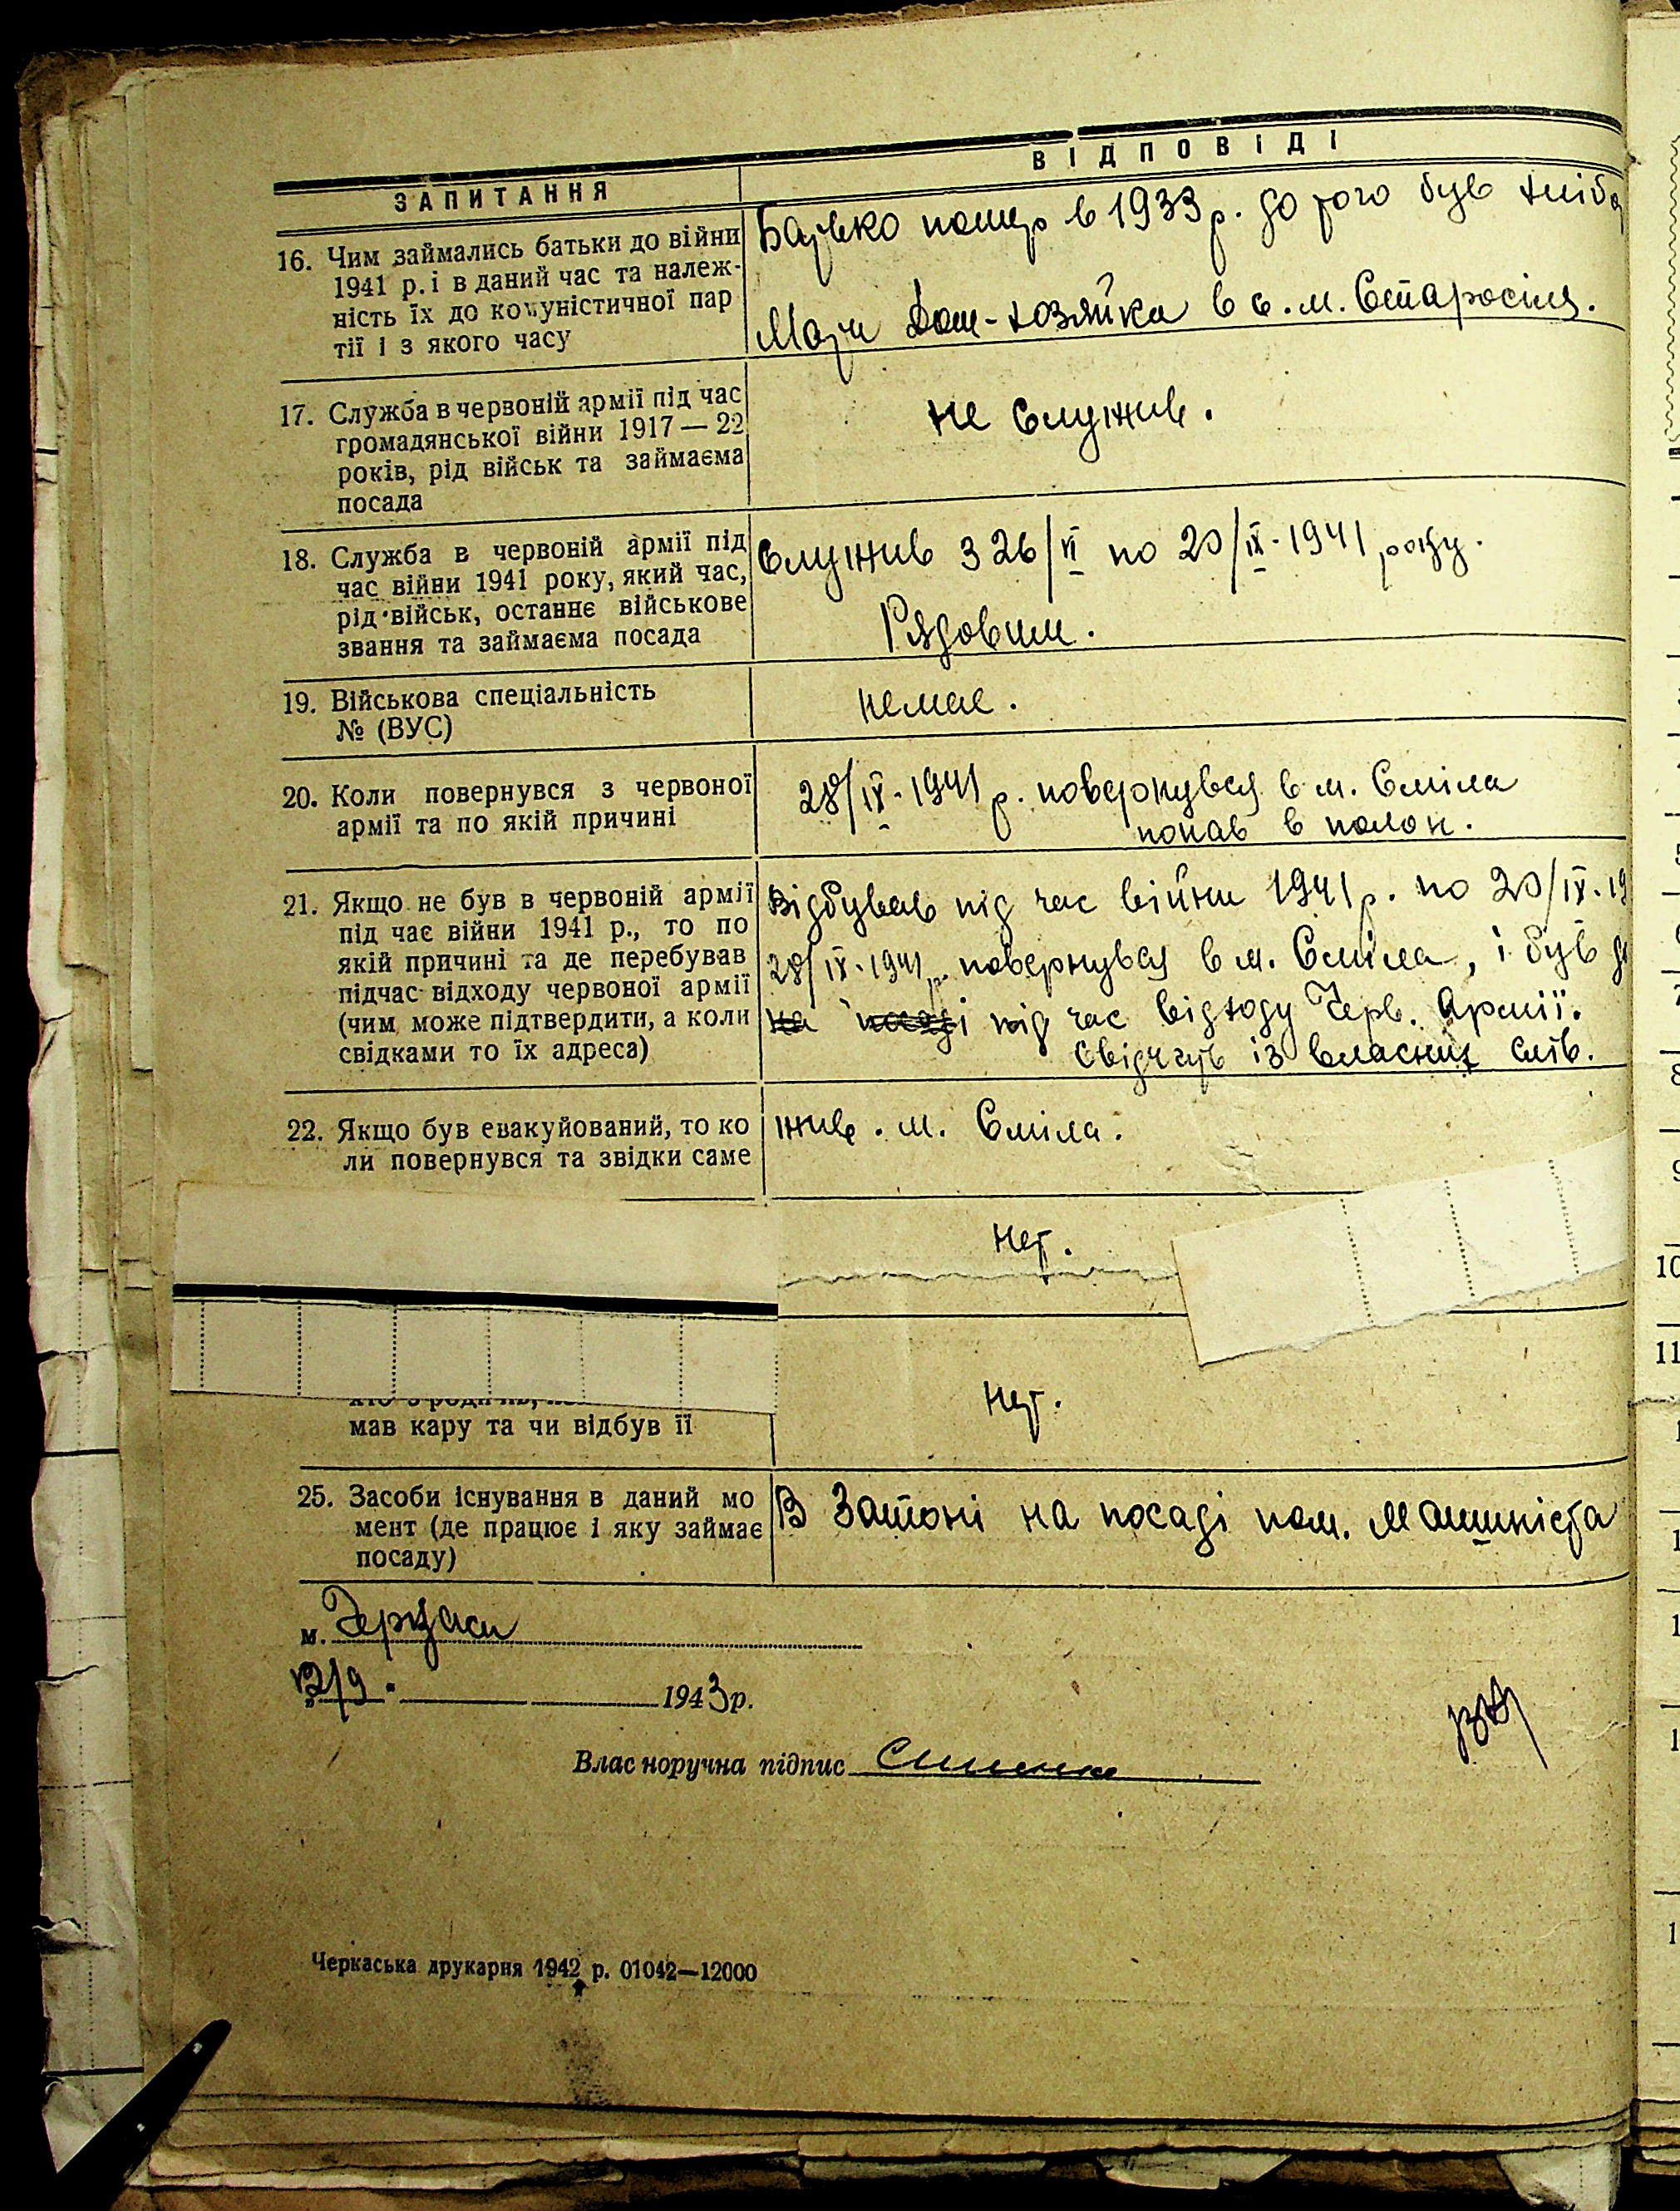 ЗАПИТАННЯ
ВІДПОВІДІ
16. Чим займались батьки до війни
1941 р. і в даний час та належ-
ність їх до комуністичної пар
тії і з якого часу
Батько помер в 1933 р. до того був хліб
Мати Дом-хозяйка в с. м. Старосіля.
17. Служба в червоній армії під час
громадянської війни 1917—22
років, рід військ та займаєма
посада
не служив.
18. Служба в червоній армії під
час війни 1941 року, який час,
рід військ, останнє військове
звання та займаєма посада
Служив з 26/VI по 20/IX-1941 року.
Рядовим.
19. Військова спеціальність
№ (ВУС)
немає.
20. Коли повернувся з червоної
армії та по якій причині
28/IX-1941 р. повернувся в м. Сміла
попав в полон.
21. Якщо не був в червоній армії
під чає війни 1941 р., то по
якій причині та де перебував
підчас відходу червоної армії
(чим може підтвердити, а коли
свідками то їх адреса)
Відбував під час війни 1941 р. по 20/IX-19
28/IX-1941 р. повернувся в м. Сміла, і був
на посаді під час відходу Черв. Армії.
Свідчить із власних слів.
22. Якщо був евакуйований, то ко
ли повернувся та звідки саме
жив. м. Сміла.
Нет.
мав кару та чи відбув її
Нет.
25. Засоби існування в даний мо
мент (де працює і яку займає
посаду)
В Затоні на посаді пом. Машиніста
м. Черкаси
12/9. 1943 р.
Власноручна підпис
Черкаська друкарня 1942 р. 01042—12000
10
11